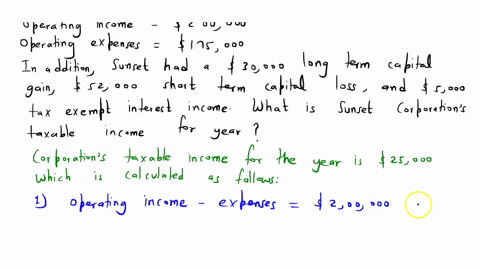 Operating income = $200,000
Operating expenses = $175,000
In addition, Sunset had a $30,000 long term capital
gain, $52,000 short term capital loss, and $5,000
tax exempt interest income. What is Sunset Corporation's
taxable income for year?
Corporation's taxable income for the year is $25,000
which is calculated as follows:
1) Operating income - expenses = $2,00,000